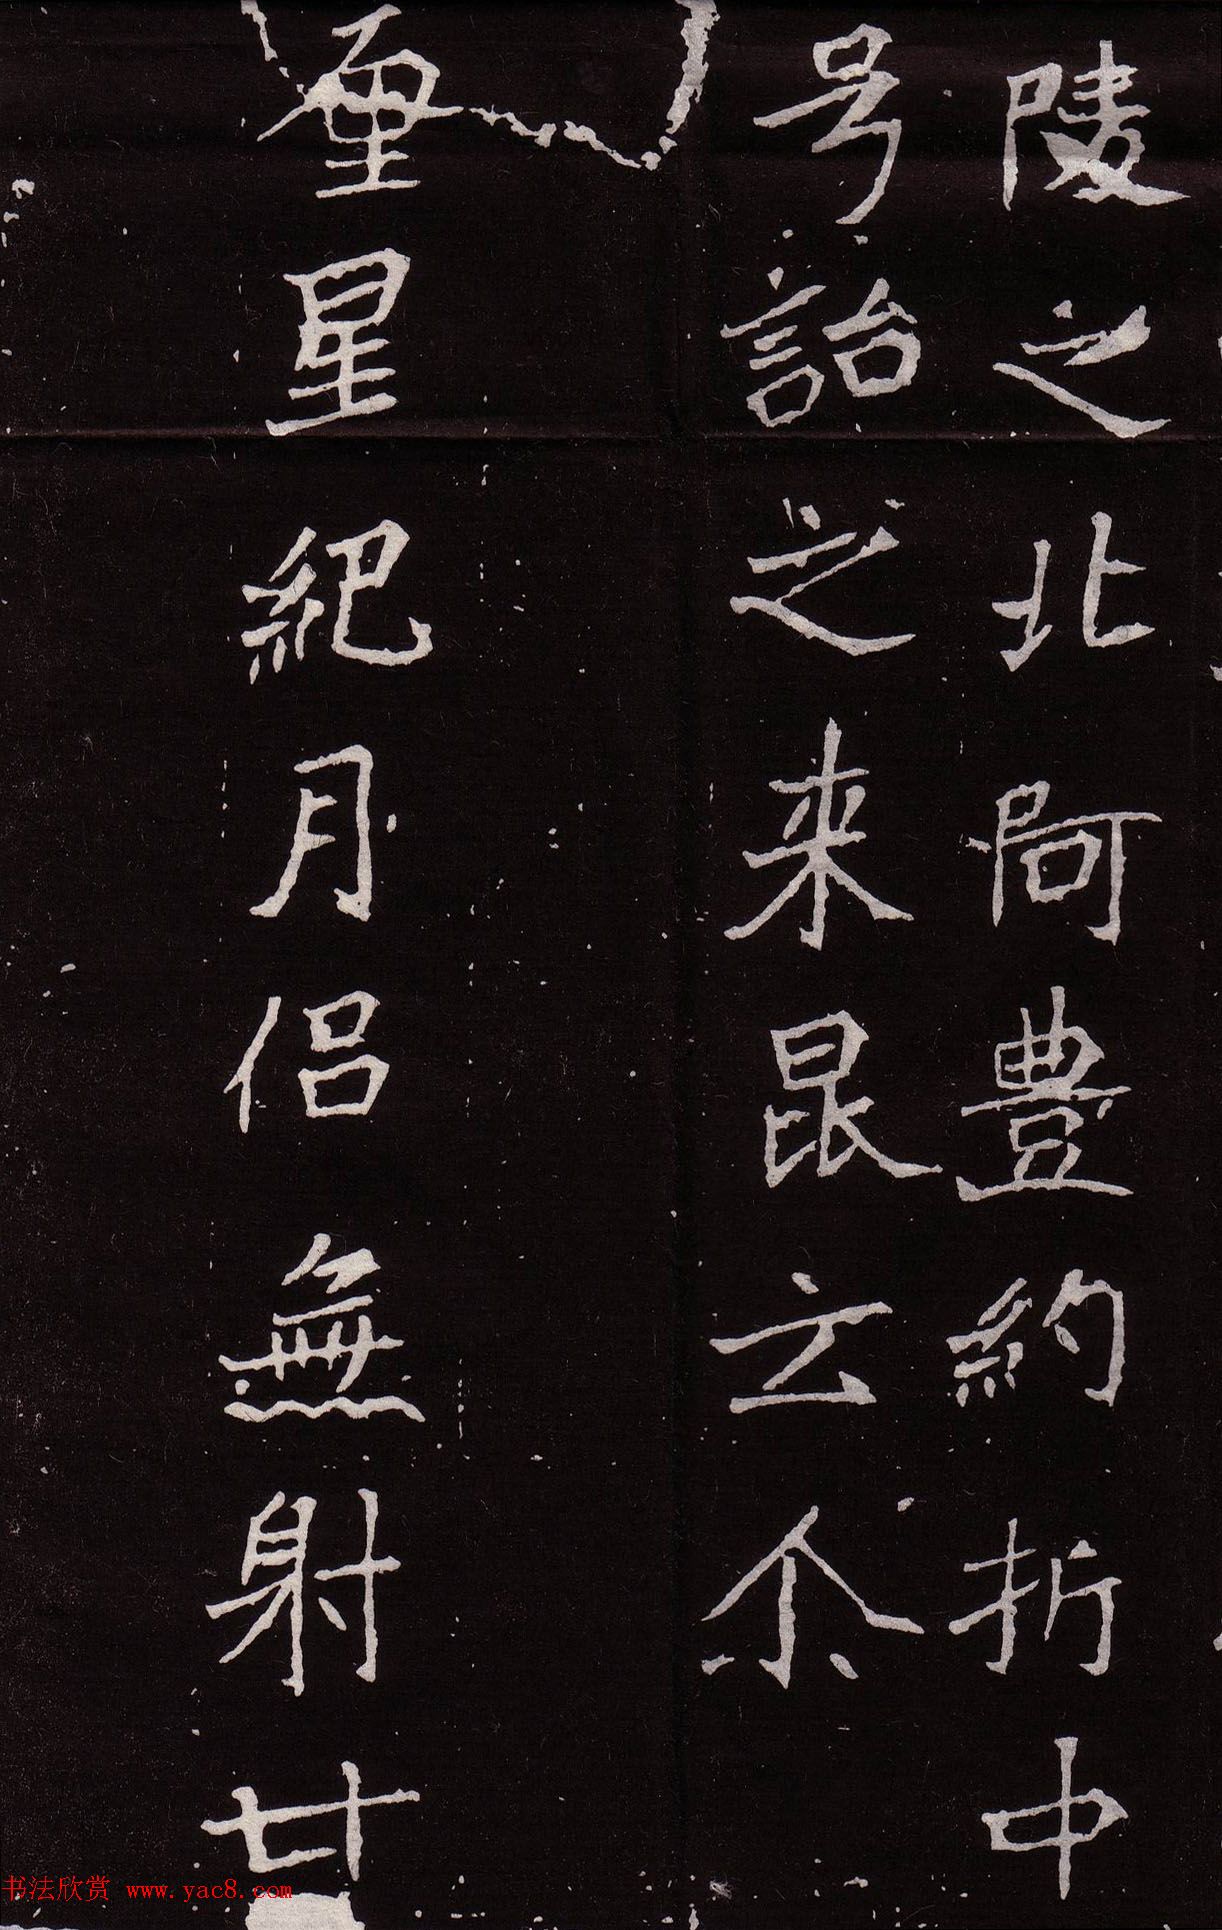 陵之北阿豊約折中
号詒之来昆云尒
星紀月侣無射廿
书法欣赏 www.yac8.com